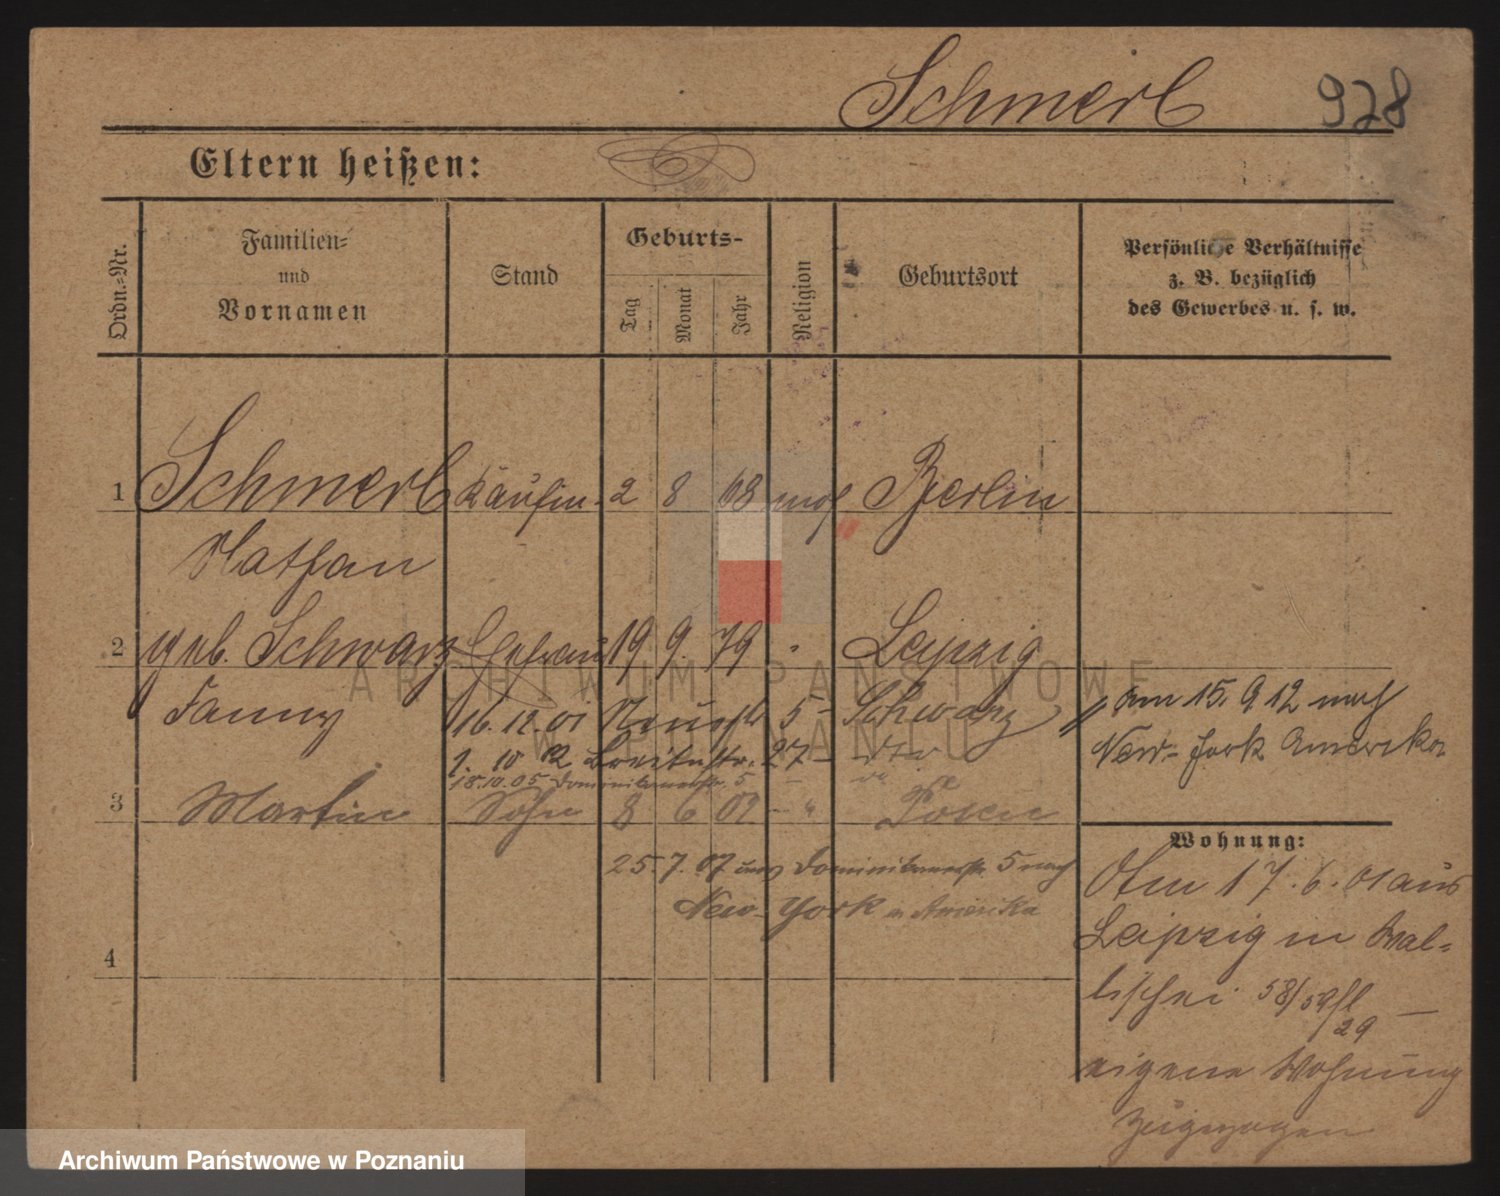 Schmerl 928
Eltern heißen:
Ordn.-Nr.
Familien-
und
Vornamen
Stand
Geburts-
Tag
Monat
Jahr
Religion
Geburtsort
Persönliche Verhältnisse
z. B. bezüglich
des Gewerbes u. s. w.
1 Schmerl Kaufm. 2 8 68 mos Berlin
Nathan
2 geb. Schwarz Ehefrau 19 9. 79 " Leipzig
Fanny 16.12.01 Neuestr 5 - Schwarz
1. 10 02 Breitestr. 27 -
18.10.05 Dominikanerstr. 5 -
3 Martin Sohn 8 6 02 - " Posen
25.7.07 aus Dominikanerstr. 5 nach
New-York in Amerika
4
Am 15.9 12 nach
New-York Amerika
Wohnung:
Am 17.6.01 aus
Leipzig in Wal-
lischei 58/59
29 -
eigene Wohnung
zugezogen
ARCHIWUM PAŃSTWOWE
W POZNANIU
Archiwum Państwowe w Poznaniu